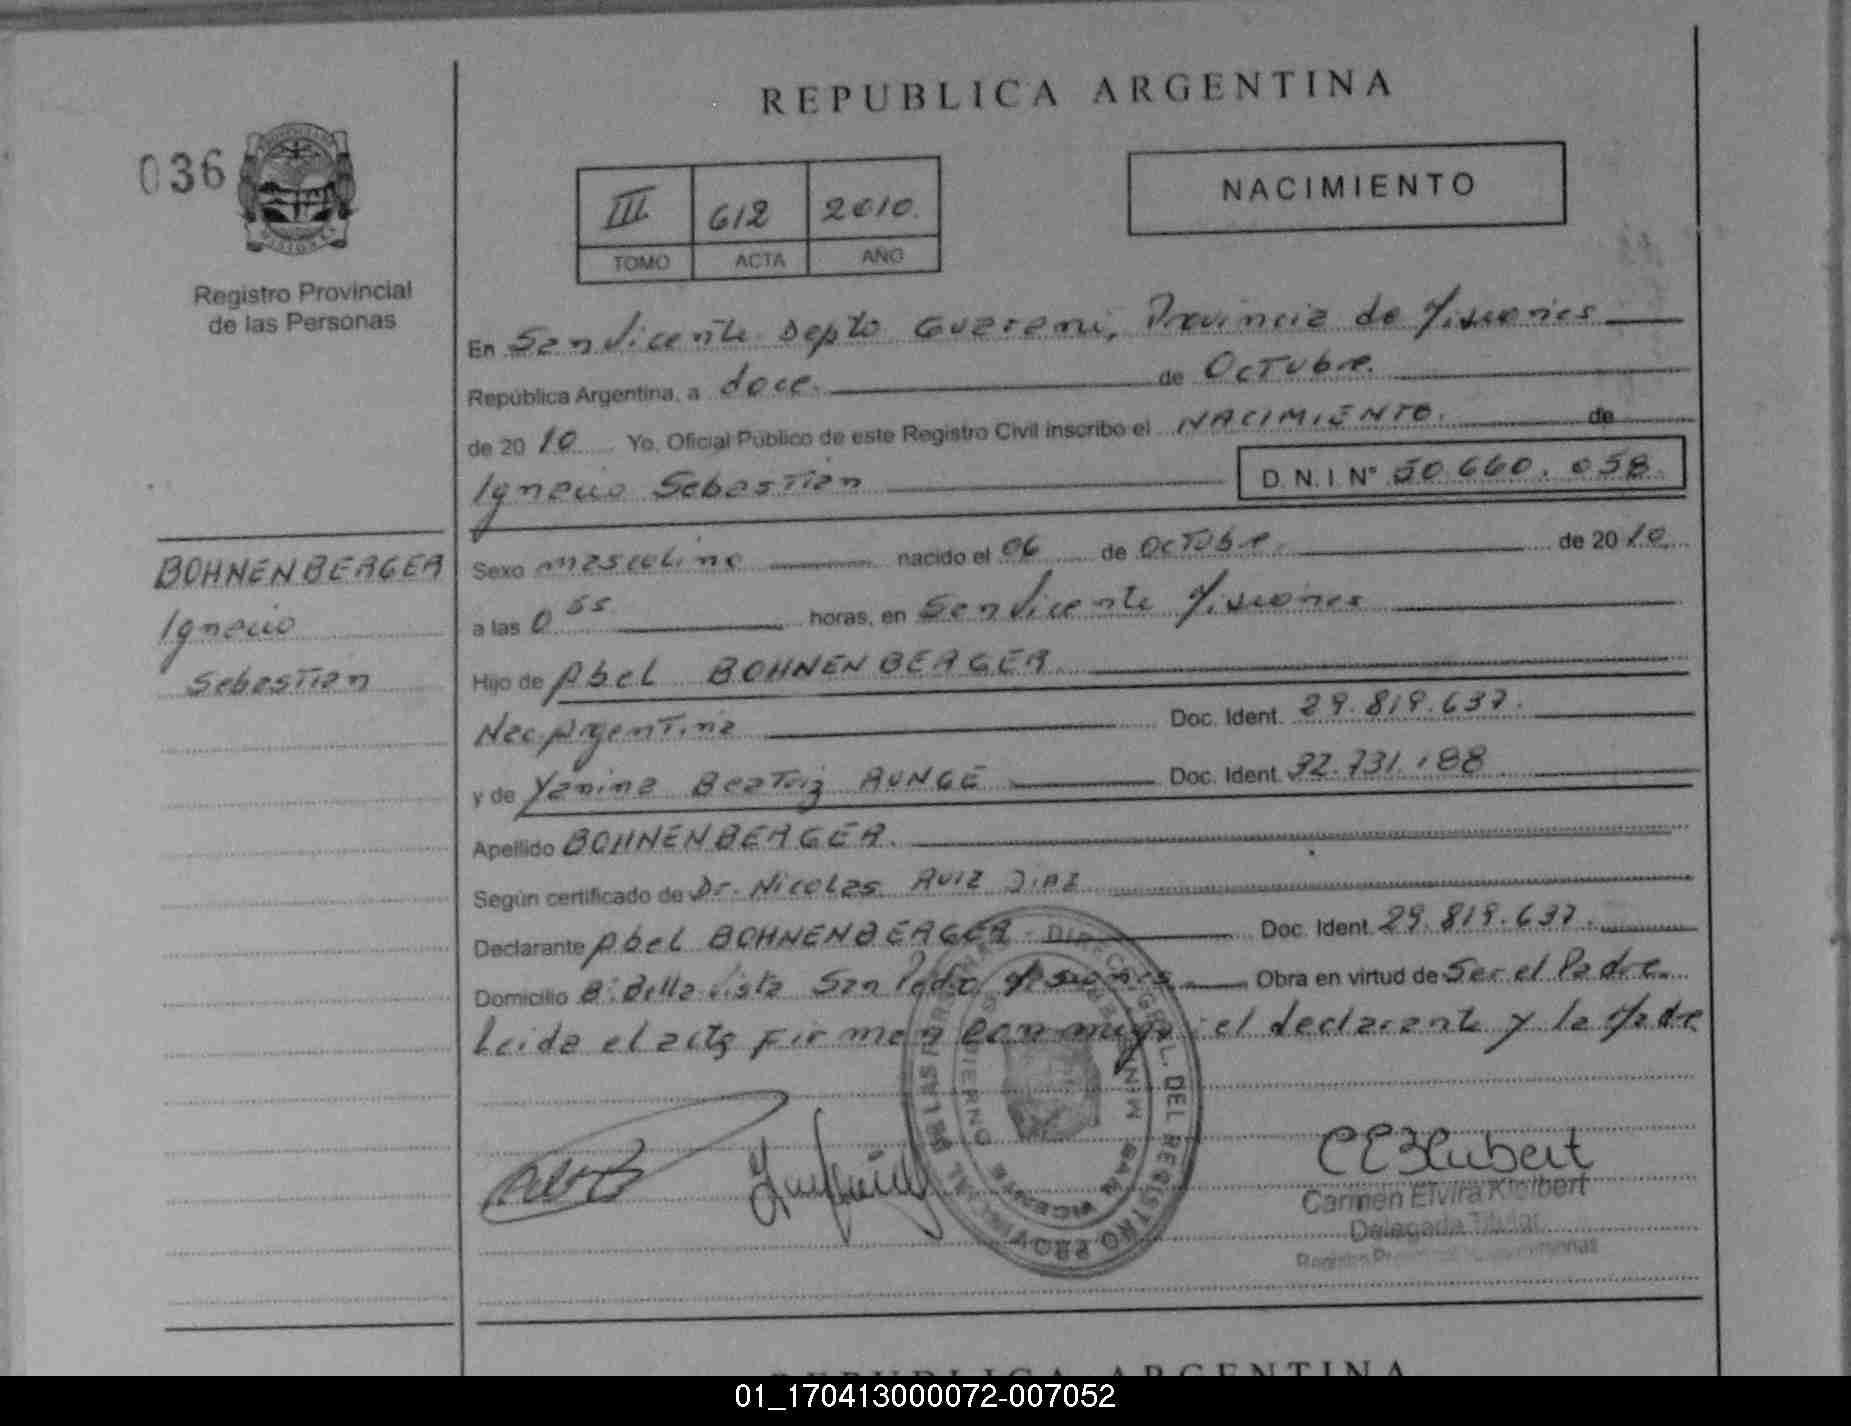 REPUBLICA ARGENTINA
036
NACIMIENTO
III 612 2010
TOMO ACTA AÑO
Registro Provincial
de las Personas
En San Vicente Depto Guarani, Provincia de Misiones
República Argentina, a doce. de Octubre.
de 20 10 Yo, Oficial Público de este Registro Civil inscribo el NACIMIENTO. de
Ignacio Sebastian D. N. I. N° 50.660.058
BOHNENBERGER
Ignacio
Sebastian
Sexo masculino nacido el 06 de Octubre. de 20 10
a las 0 55 horas, en San Vicente Misiones
Hijo de Abel BOHNENBERGER
Nac. Argentina Doc. Ident. 29.819.637.
y de Yanina Beatriz RUNGE Doc. Ident. 32.731.188
Apellido BOHNENBERGER.
Según certificado de Dr. Nicolas RUIZ DIAZ
Declarante Abel BOHNENBERGER Doc. Ident. 29.819.637.
Domicilio B° Bella Vista San Pedro Misiones Obra en virtud de Ser el Padre.
Leida el acta firman conmigo el declarante y la Madre
DEL REGISTRO PROVINCIAL DE LAS
SAN VICENTE
Carmen Elvira Kleibert
Delegada Titular
REPUBLICA ARGENTINA
01_170413000072-007052